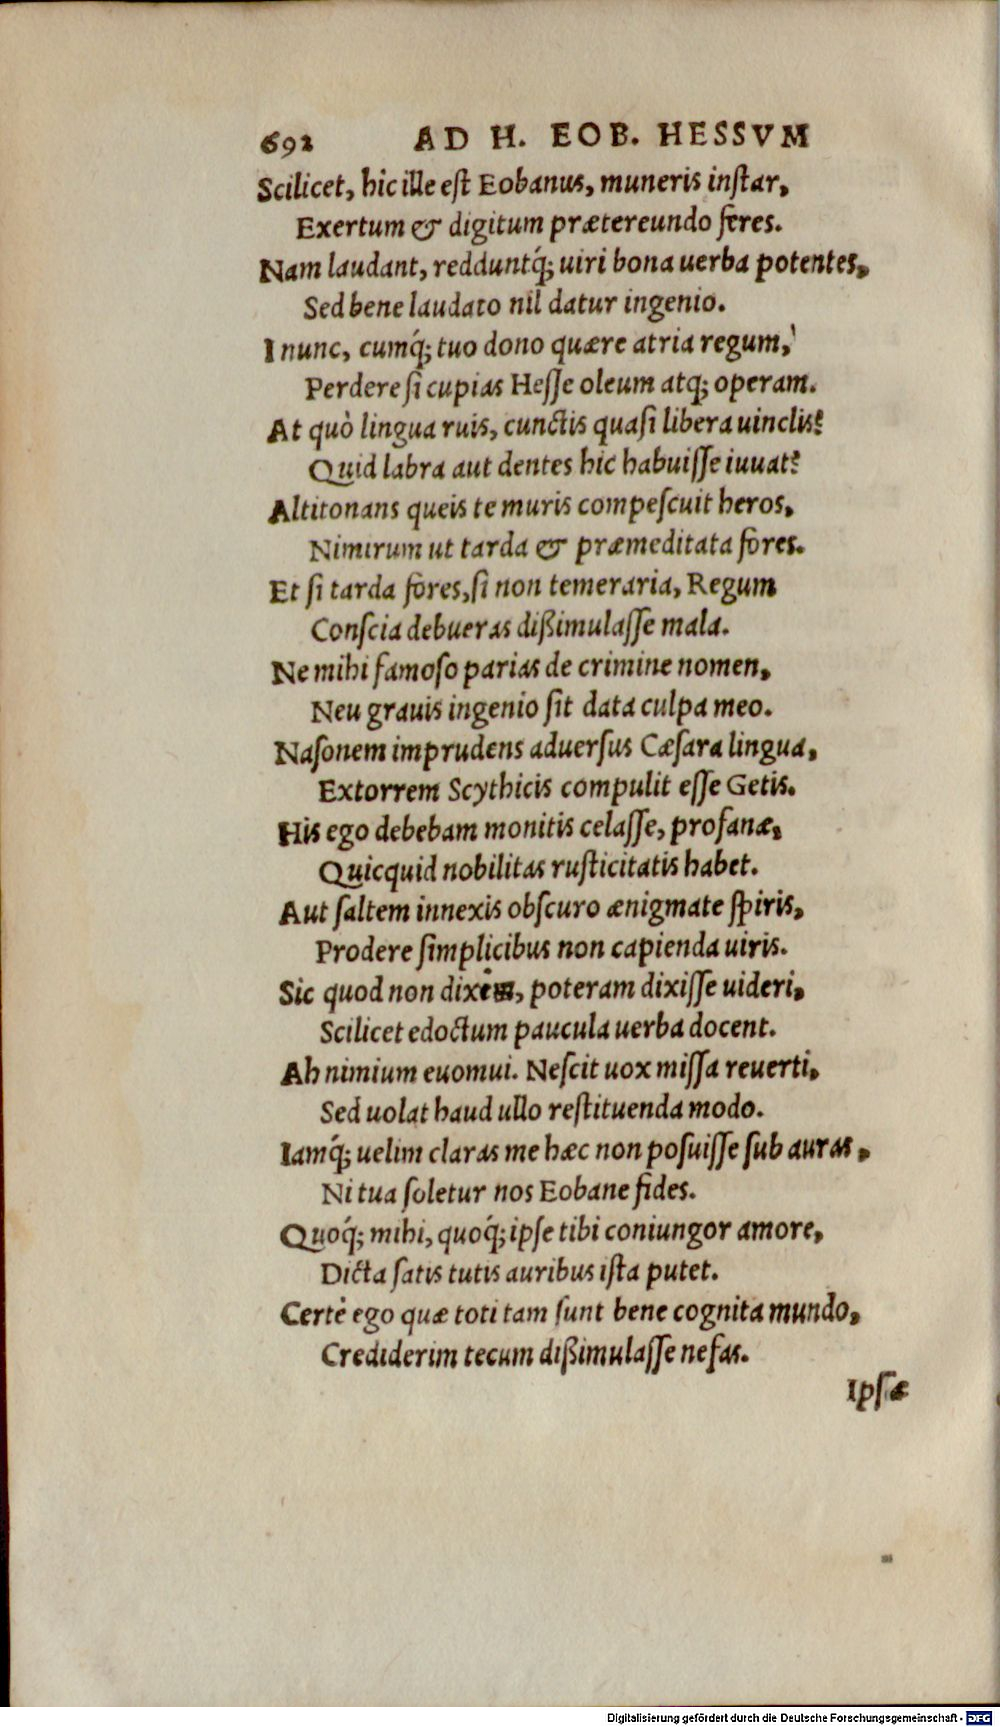 692 AD H. EOB. HESSVM
Scilicet, hic ille est Eobanus, muneris instar,
Exertum & digitum prætereundo feres.
Nam laudant, redduntq́; uiri bona uerba potentes,
Sed bene laudato nil datur ingenio.
I nunc, cumq́; tuo dono quære atria regum,
Perdere si cupias Hesse oleum atq; operam.
At quò lingua ruis, cunctis quasi libera uinclis?
Quid labra aut dentes hic habuisse iuuat?
Altitonans queis te muris compescuit heros,
Nimirum ut tarda & præmeditata fores.
Et si tarda fores, si non temeraria, Regum
Conscia debueras dißimulasse mala.
Ne mihi famoso parias de crimine nomen,
Neu grauis ingenio sit data culpa meo.
Nasonem imprudens aduersus Cæsara lingua,
Extorrem Scythicis compulit esse Getis.
His ego debebam monitis celasse, profanæ,
Quicquid nobilitas rusticitatis habet.
Aut saltem innexis obscuro ænigmate spiris,
Prodere simplicibus non capienda uiris.
Sic quod non , poteram dixisse uideri,
Scilicet edoctum paucula uerba docent.
Ah nimium euomui. Nescit uox missa reuerti,
Sed uolat haud ullo restituenda modo.
Iamq́; uelim claras me hæc non posuisse sub auras,
Ni tua soletur nos Eobane fides.
Quoq́; mihi, quoq́; ipse tibi coniungor amore,
Dicta satis tutis auribus ista putet.
Certè ego quæ toti tam sunt bene cognita mundo,
Crediderim tecum dißimulasse nefas.
Ipsæ
Digitalisierung gefördert durch die Deutsche Forschungsgemeinschaft - DFG